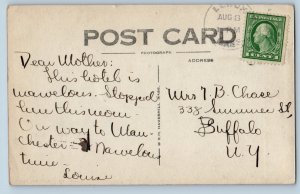 POST CARD
PHOTOGRAPH
ADDRESS
AUG 13
U.S. POSTAGE
Dear Mother:
This hotel is
marvelous. Stopped
here this noon
On way to Man-
chester. Marvelous
time.
Louise
Mrs T. B. Chace
333 Summer St,
Buffalo
N.Y